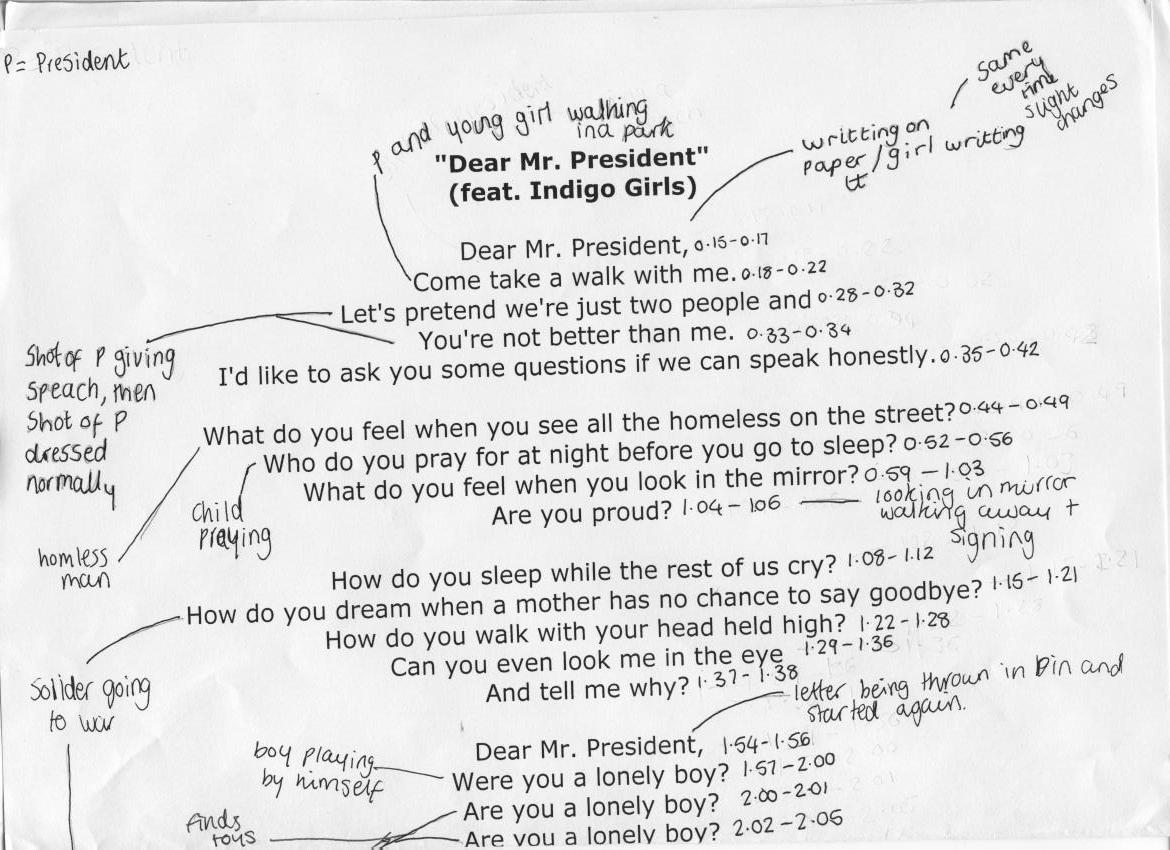 P= President
same
every
time
slight
changes
P and young girl walking
in a park
writting on
paper/girl writting
it
"Dear Mr. President"
(feat. Indigo Girls)
Dear Mr. President, 0.15-0.17
Come take a walk with me. 0.18-0.22
Let's pretend we're just two people and 0.28-0.32
You're not better than me. 0.33-0.34
I'd like to ask you some questions if we can speak honestly. 0.35-0.42
Shot of P giving
speach, then
Shot of P
dressed
normally
What do you feel when you see all the homeless on the street? 0.44-0.49
Who do you pray for at night before you go to sleep? 0.52-0.56
What do you feel when you look in the mirror? 0.59-1.03
Are you proud? 1.04-106
looking in mirror
walking away +
signing
Child
praying
homless
man
How do you sleep while the rest of us cry? 1.08-1.12
How do you dream when a mother has no chance to say goodbye? 1.15-1.21
How do you walk with your head held high? 1.22-1.28
Can you even look me in the eye 1.29-1.36
And tell me why? 1.37-1.38
Solider going
to war
letter being thrown in bin and
started again.
Dear Mr. President, 1.54-1.56
Were you a lonely boy? 1.57-2.00
Are you a lonely boy? 2.00-2.01
Are you a lonely boy? 2.02-2.05
boy playing
by himself
finds
toys